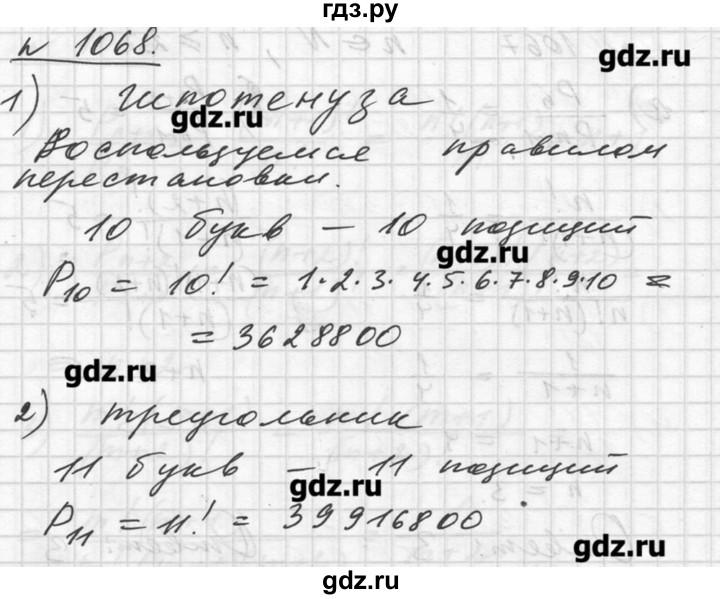 гдз.ру
№ 1068.
gdz.ru
1) гипотенуза
gdz.ru
Воспользуемся правилом
перестановки.
10 букв — 10 позиций
gdz.ru
P₁₀ = 10! = 1·2·3·4·5·6·7·8·9·10 =
= 3628800
gdz.ru
2) треугольник
11 букв — 11 позиций
gdz.ru
P₁₁ = 11! = 39916800
gdz.ru
gdz.ru